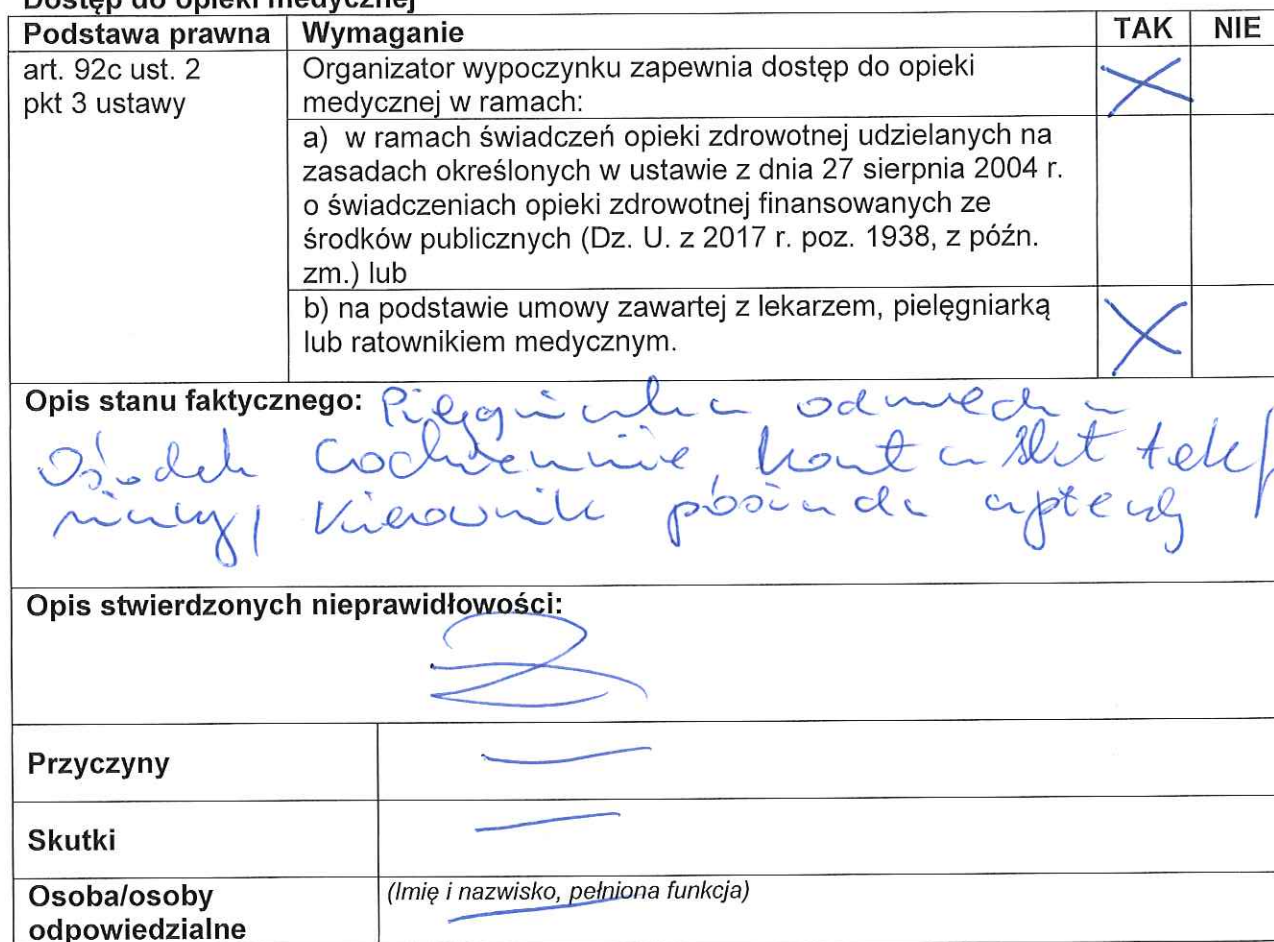 Dostęp do opieki medycznej
Podstawa prawna Wymaganie TAK NIE
art. 92c ust. 2
pkt 3 ustawy
Organizator wypoczynku zapewnia dostęp do opieki
medycznej w ramach:
a) w ramach świadczeń opieki zdrowotnej udzielanych na
zasadach określonych w ustawie z dnia 27 sierpnia 2004 r.
o świadczeniach opieki zdrowotnej finansowanych ze
środków publicznych (Dz. U. z 2017 r. poz. 1938, z późn.
zm.) lub
b) na podstawie umowy zawartej z lekarzem, pielęgniarką
lub ratownikiem medycznym.
Opis stanu faktycznego: Pielęgniarka odwiedza
Ośrodek codziennie, kontakt telef
Kierownik posiada apteczkę
Opis stwierdzonych nieprawidłowości:
Przyczyny
Skutki
Osoba/osoby
odpowiedzialne
(Imię i nazwisko, pełniona funkcja)